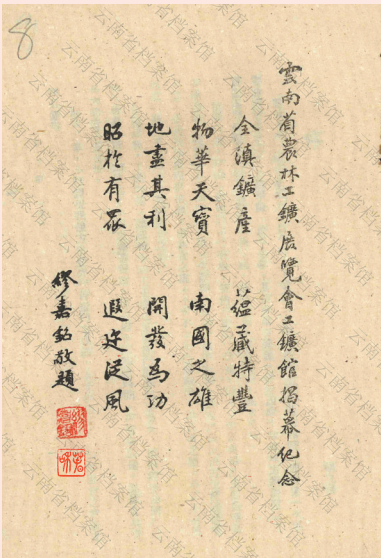 雲南省農林工鑛展覽會工鑛館揭幕紀念
全滇鑛產 蕴藏特豐
物華天寶 南國之雄
地盡其利 開發為功
昭於有眾 遐迩從風
繆嘉銘敬題
8
云南省档案馆